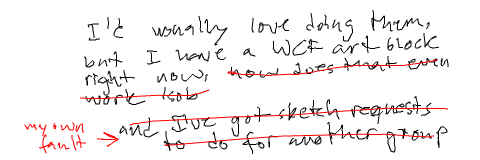 I'd usually love doing them,
but I have a WCF art block
right now, how does that even
work (sob
and I've got sketch requests
to do for another group
my own
fault →